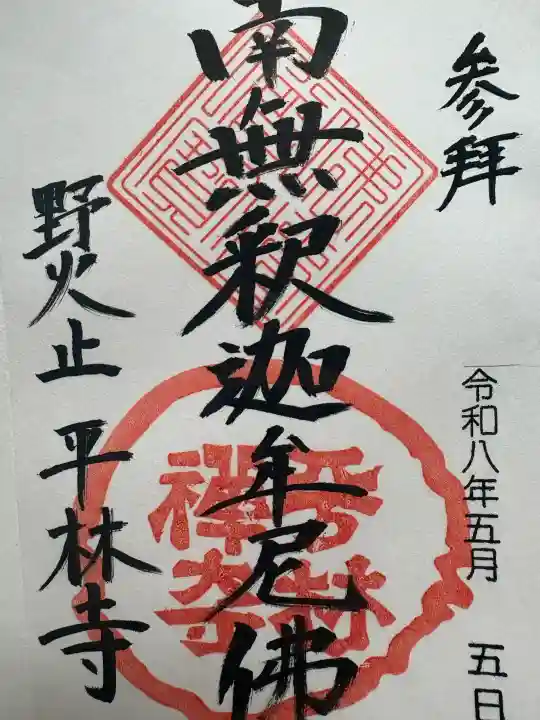 参拝
令和八年五月 五日
南無釈迦牟尼佛
野火止 平林寺
平林
禅寺